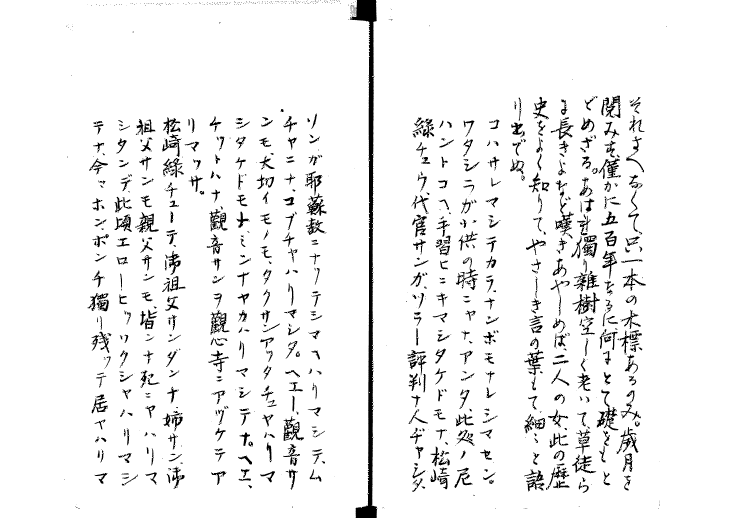 それさへなくて、只一本の木標あるのみ。歳月を
閲みす僅かに五百年なるに何とて礎をもと
どめざる。あはれ獨り雜樹空しく老いて、草徒ら
に長きよなど嘆きあやしめば、二人の女、此の歴
史をよく知りて、やさしき言の葉もて、細々と語
り出でぬ。
コハサレマシテカラ、ナンボモナレシマセン。
ワタシラガ小供の時ニヤナ、アンタ、此処ノ尼
ハントコヘ、手習ヒニキマシタケドモナ、松崎
綠チュウ、代官サンガ、ソラー評判ナ人ヂヤシタ
ソンガ耶蘇敎ニナリテシマヘハリマシテ、ム
チヤニナ、コブチヤハリマシタ。ヘエー、觀音サ
ンモ、大切イモノモ、タクサンアツタチユヤハリマ
シタケドモナ、ミンナヤカハリマシテナ。ヘエ、
ケツトハナ、觀音サンヲ觀心寺ニアヅケテア
リマツサ。
松崎綠チユーテ、御祖父サンダンナ姉サン、御
祖父サンモ親父サンモ、皆ンナ死ニヤハリマ
シタンデ、此頃エローヒツソクシヤハリマシ
テナ、今マホンボンチ獨リ残ツテ居ヤハリマ